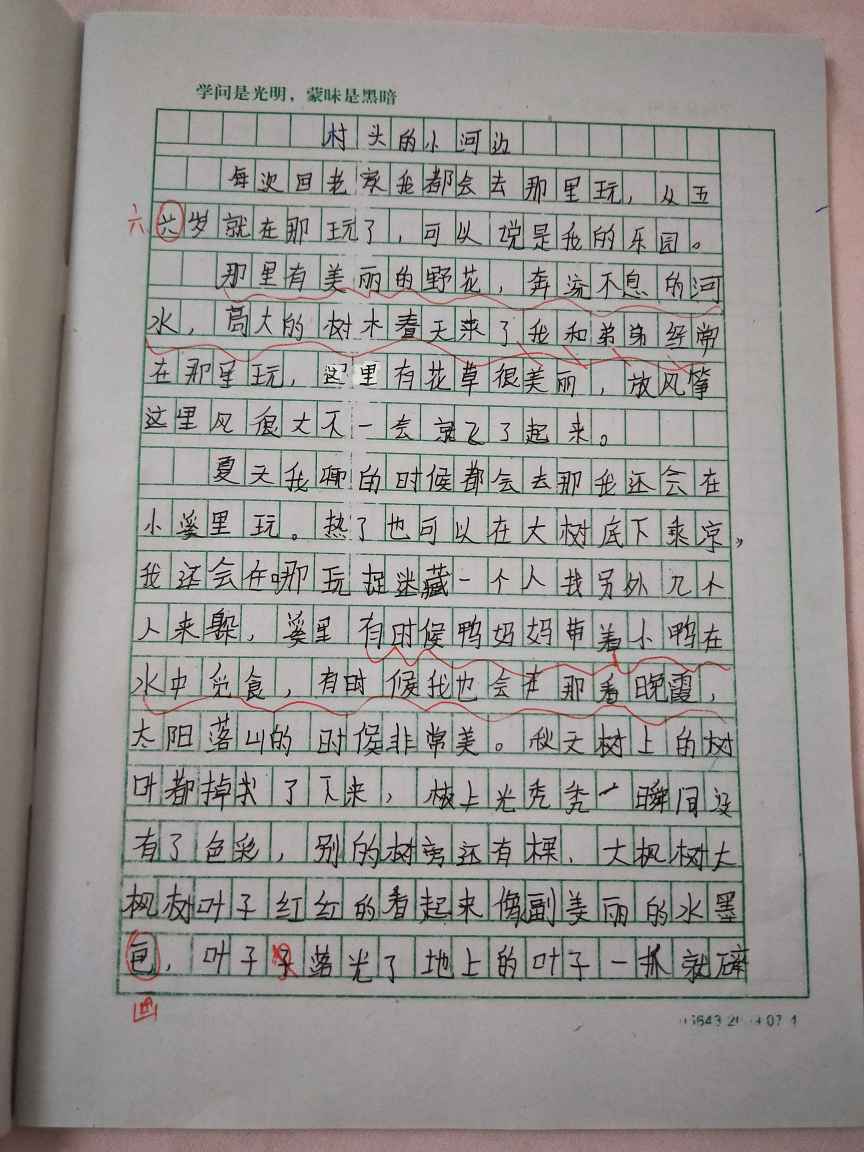 学问是光明，蒙昧是黑暗
村头的小河边
每次回老家我都会去那里玩，从五
六六岁就在那玩了，可以说是我的乐园。
那里有美丽的野花，奔流不息的河
水，高大的树木春天来了我和弟弟经常
在那里玩，这里有花草很美丽，放风筝
这里风很大不一会就飞了起来。
夏天我聊的时候都会去那我还会在
小溪里玩。热了也可以在大树底下乘凉，
我还会在哪玩捉迷藏一个人找另外几个
人来躲，溪里有时候鸭妈妈带着小鸭在
水中觅食，有时候我也会在那看晚霞，
太阳落山的时候非常美。秋天树上的树
叶都掉了下来，树上光秃秃一瞬间没
有了色彩，别的树旁还有棵、大枫树大
枫树叶子红红的看起来像副美丽的水墨
画，叶子落光了地上的叶子一抓就碎
画